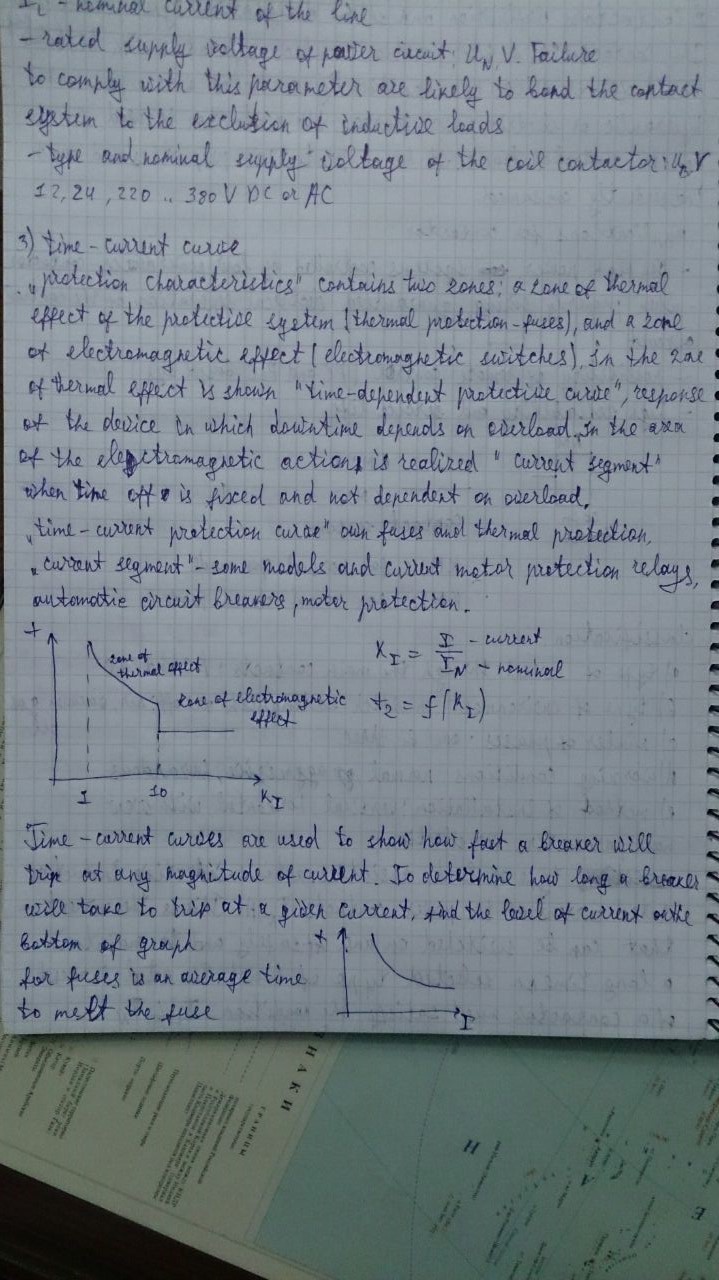 - nominal current of the line
- rated supply voltage of power circuit; U_N, V. Failure
to comply with this parameter are likely to bond the contact
system to the exclution of inductive loads
- type and nominal supply voltage of the coil contactor: V
12, 24, 220 .. 380 V DC or AC
3) time - current curve
"protection characteristics" contains two zones; a zone of thermal
effect of the protective system (thermal protection - fuses), and a zone
of electromagnetic effect (electromagnetic switches). In the zone
of thermal effect is shown "time-dependent protective curve", response
of the device in which downtime depends on overload. In the area
of the electromagnetic action is realized "current segment"
when time off is fixed and not dependent on overload.
"time - current protection curve" own fuses and thermal protection,
"current segment" - some models and current motor protection relays,
automatic circuit breakers, motor protection.
t
zone of
thermal effect
zone of electromagnetic
effect
1
10
K_I
K_I = I / I_N - current - nominal
t_2 = f(K_I)
Time - current curves are used to show how fast a breaker will
trip at any magnitude of current. To determine how long a breaker
will take to trip at a given current, find the level of current on the
bottom of graph
for fuses is an average time
to melt the fuse
t
I
ЗНАКИ
ГРАНИЦЫ
Н
А
Е